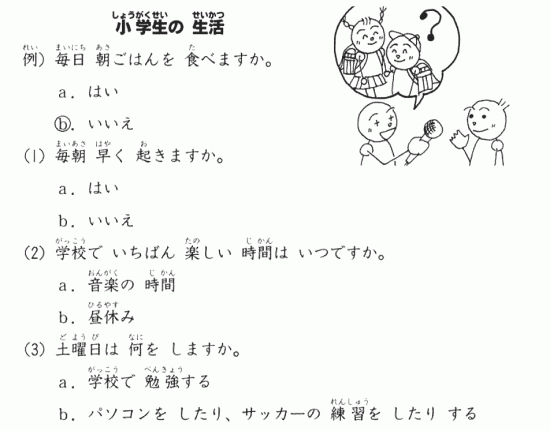 小学生の 生活
例) 毎日 朝ごはんを 食べますか。
a. はい
ⓑ. いいえ
(1) 毎朝 早く 起きますか。
a. はい
b. いいえ
(2) 学校で いちばん 楽しい 時間は いつですか。
a. 音楽の 時間
b. 昼休み
(3) 土曜日は 何を しますか。
a. 学校で 勉強する
b. パソコンを したり、サッカーの 練習を したり する
?